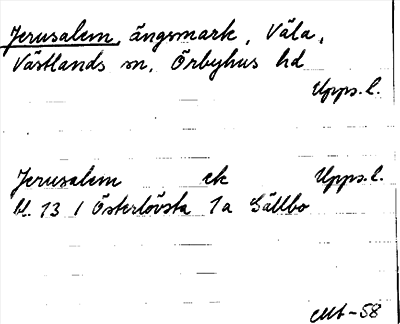 Jerusalem, ängsmark, Väla,
Västlands sn, Örbyhus hd
Upps.l.
Jerusalem ek Upps.l.
bl. 13 1 Österlövsta 1a Gällbo
-58